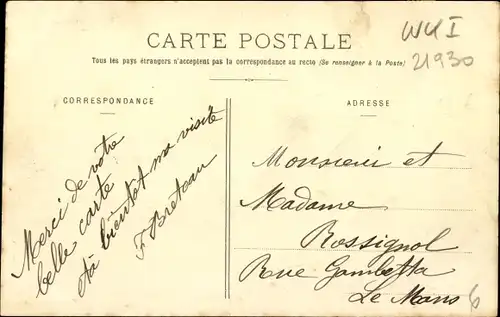 CARTE POSTALE
Tous les pays étrangers n'acceptent pas la correspondance au recto (Se renseigner à la Poste)
WKI
21930
CORRESPONDANCE
Merci de votre
belle carte
et à bientôt ma visite
F Breteau
ADRESSE
Monsieur et
Madame
Rossignol
Rue Gambetta
Le Mans
6